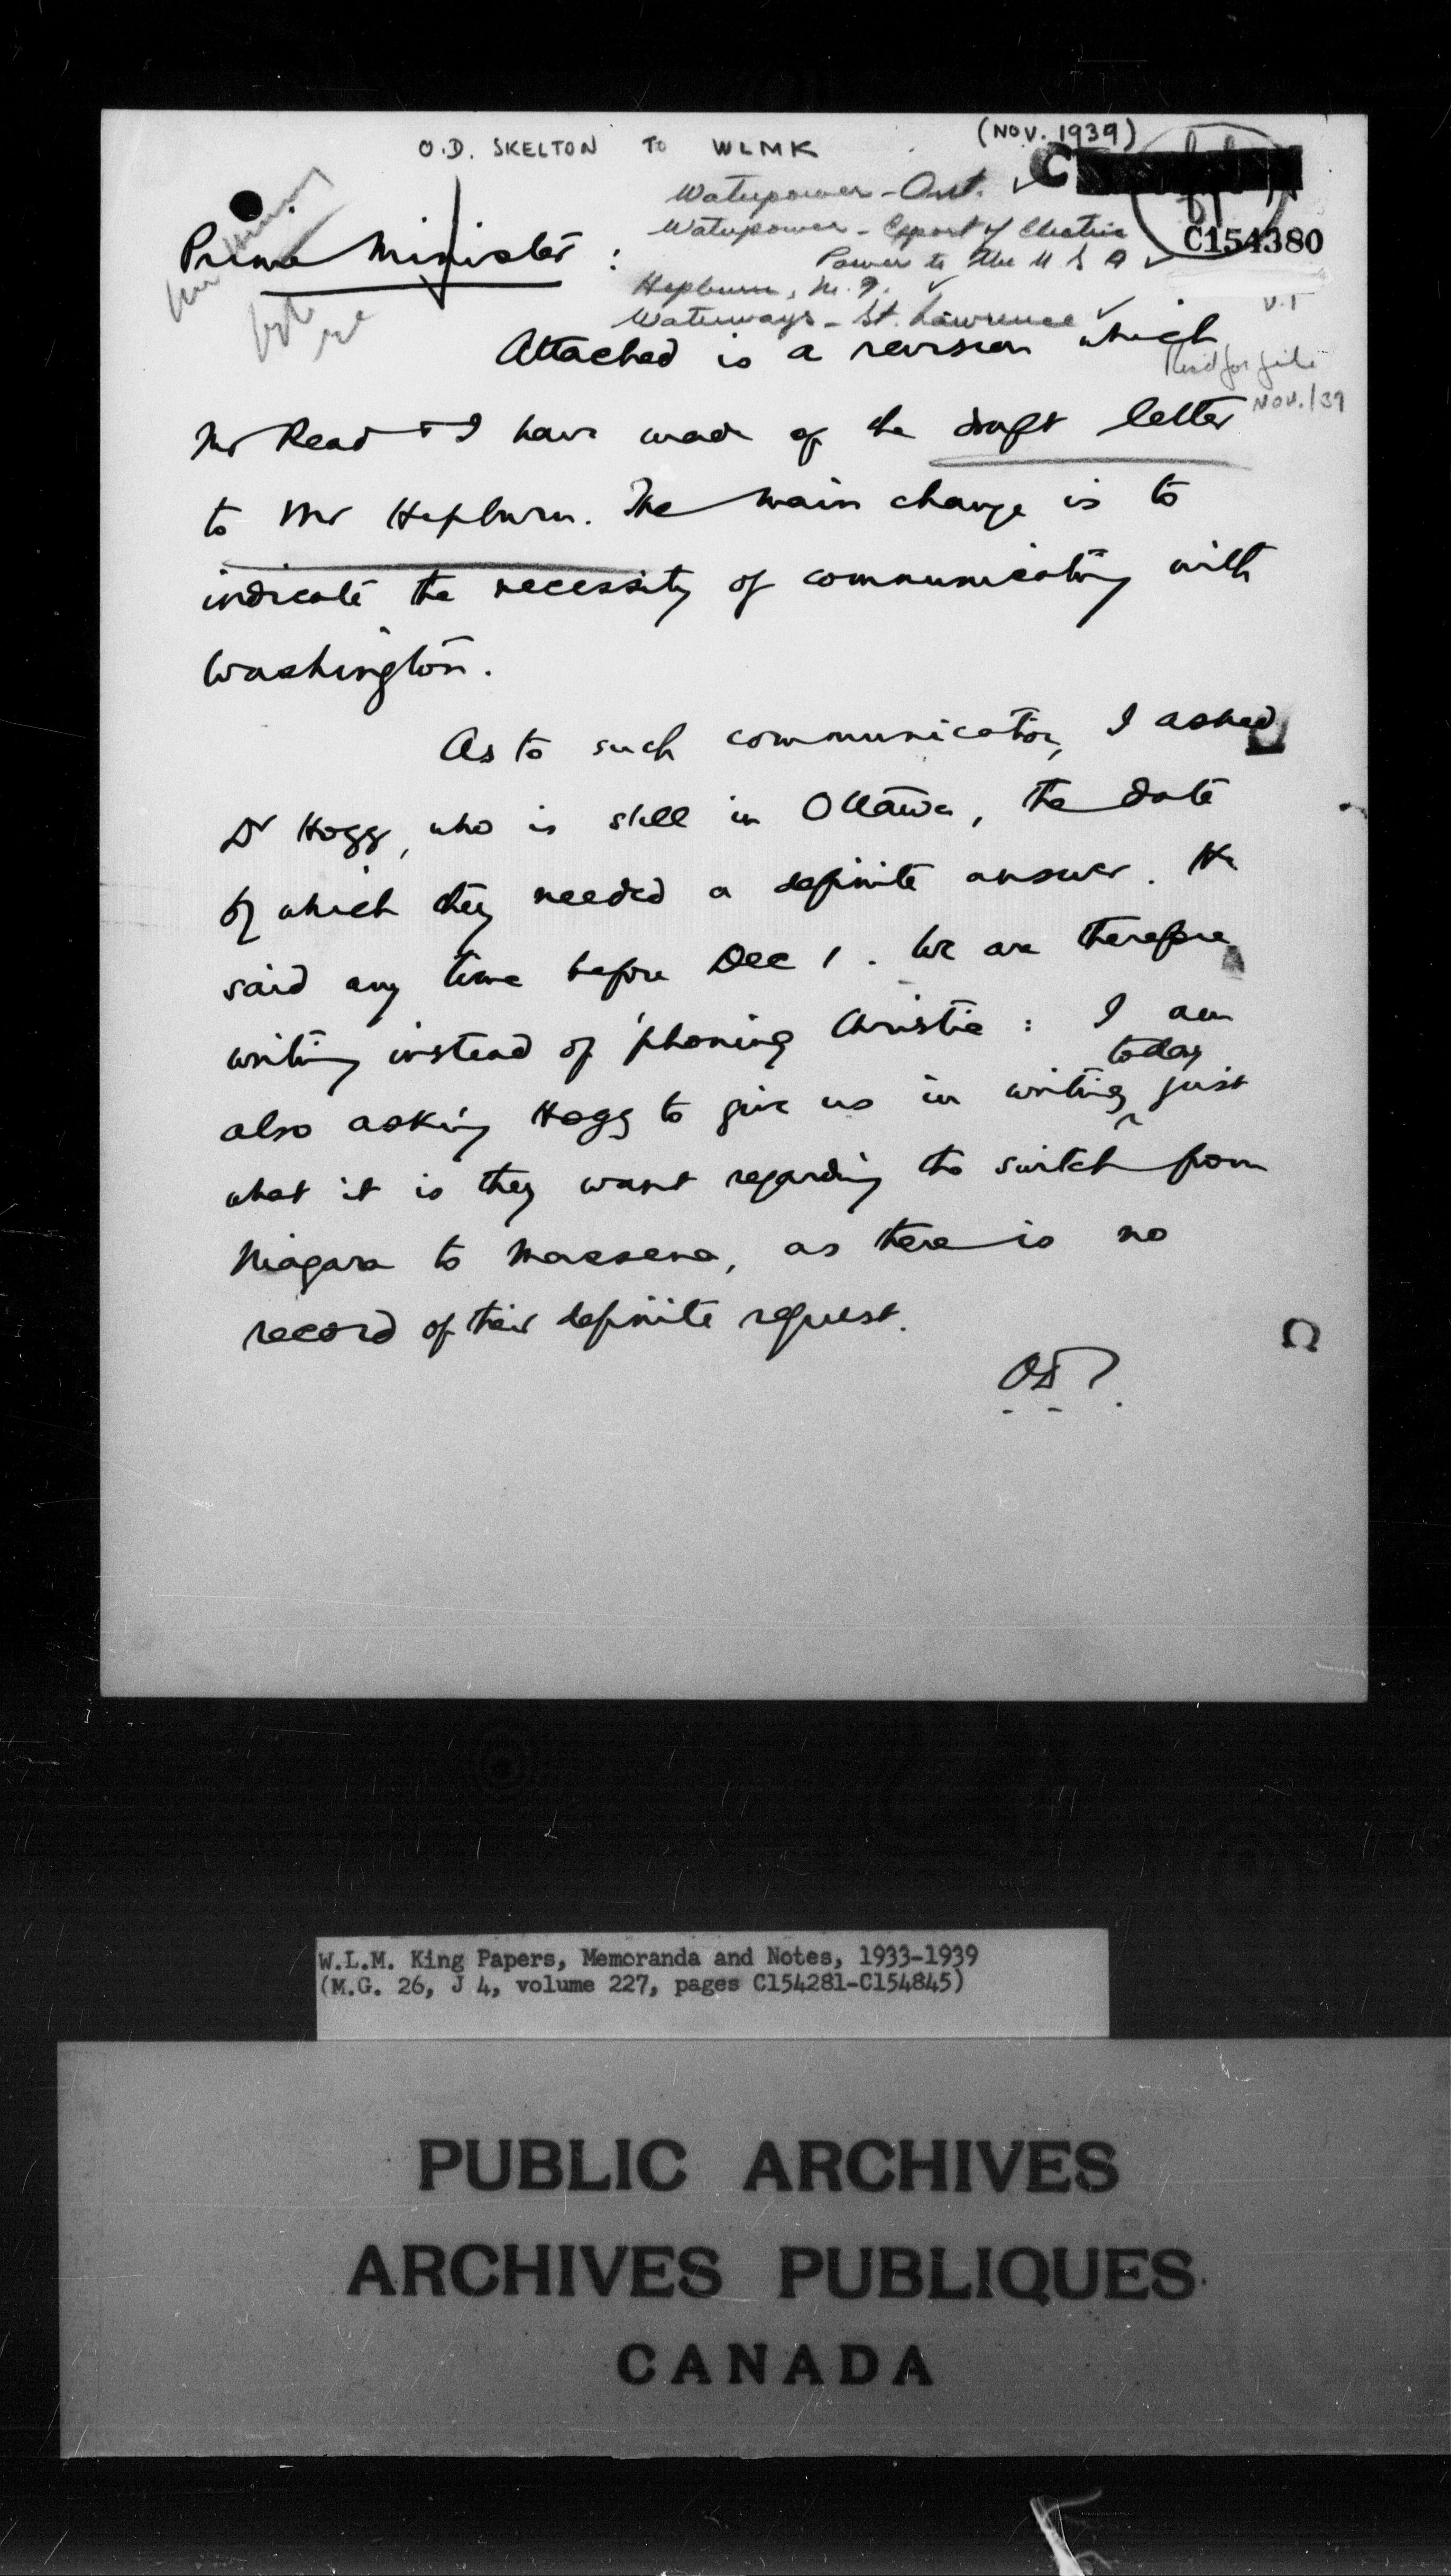 O.D. SKELTON TO WLMK
(NOV. 1939)
Waterpower - Ont.
C
Waterpower - Export of Electric
Power to the U S A
C154380
Prime Minister :
Hepburn, M. F.
Waterways - St. Lawrence
Attached is a revision which
NOV./39
Mr Read & I have made of the draft letter
to Mr Hepburn. The main change is to
indicate the necessity of communicating with
Washington.
As to such communication, I asked
Dr Hogg, who is still in Ottawa, the date
by which they needed a definite answer. He
said any time before Dec 1. We are therefore
writing instead of 'phoning Christie: I am
today
also asking Hogg to give us in writing just
what it is they want regarding the switch from
Niagara to Massena, as there is no
record of their definite request.
O.D.S.
W.L.M. King Papers, Memoranda and Notes, 1933-1939
(M.G. 26, J 4, volume 227, pages C154281-C154845)
PUBLIC ARCHIVES
ARCHIVES PUBLIQUES
CANADA